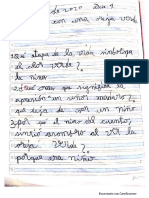 de 2020 Dia 9
con una oreja verde
1 Qué etapa de la vida simboliza
el color verde?
la niñez
2 Que crees que significa la
aparición un señor maduro?
que deja de ser un niño
3 por qué el niño del cuento,
sintio asombro al ver la
oreja verde?
porque era niño
Escaneado con CamScanner